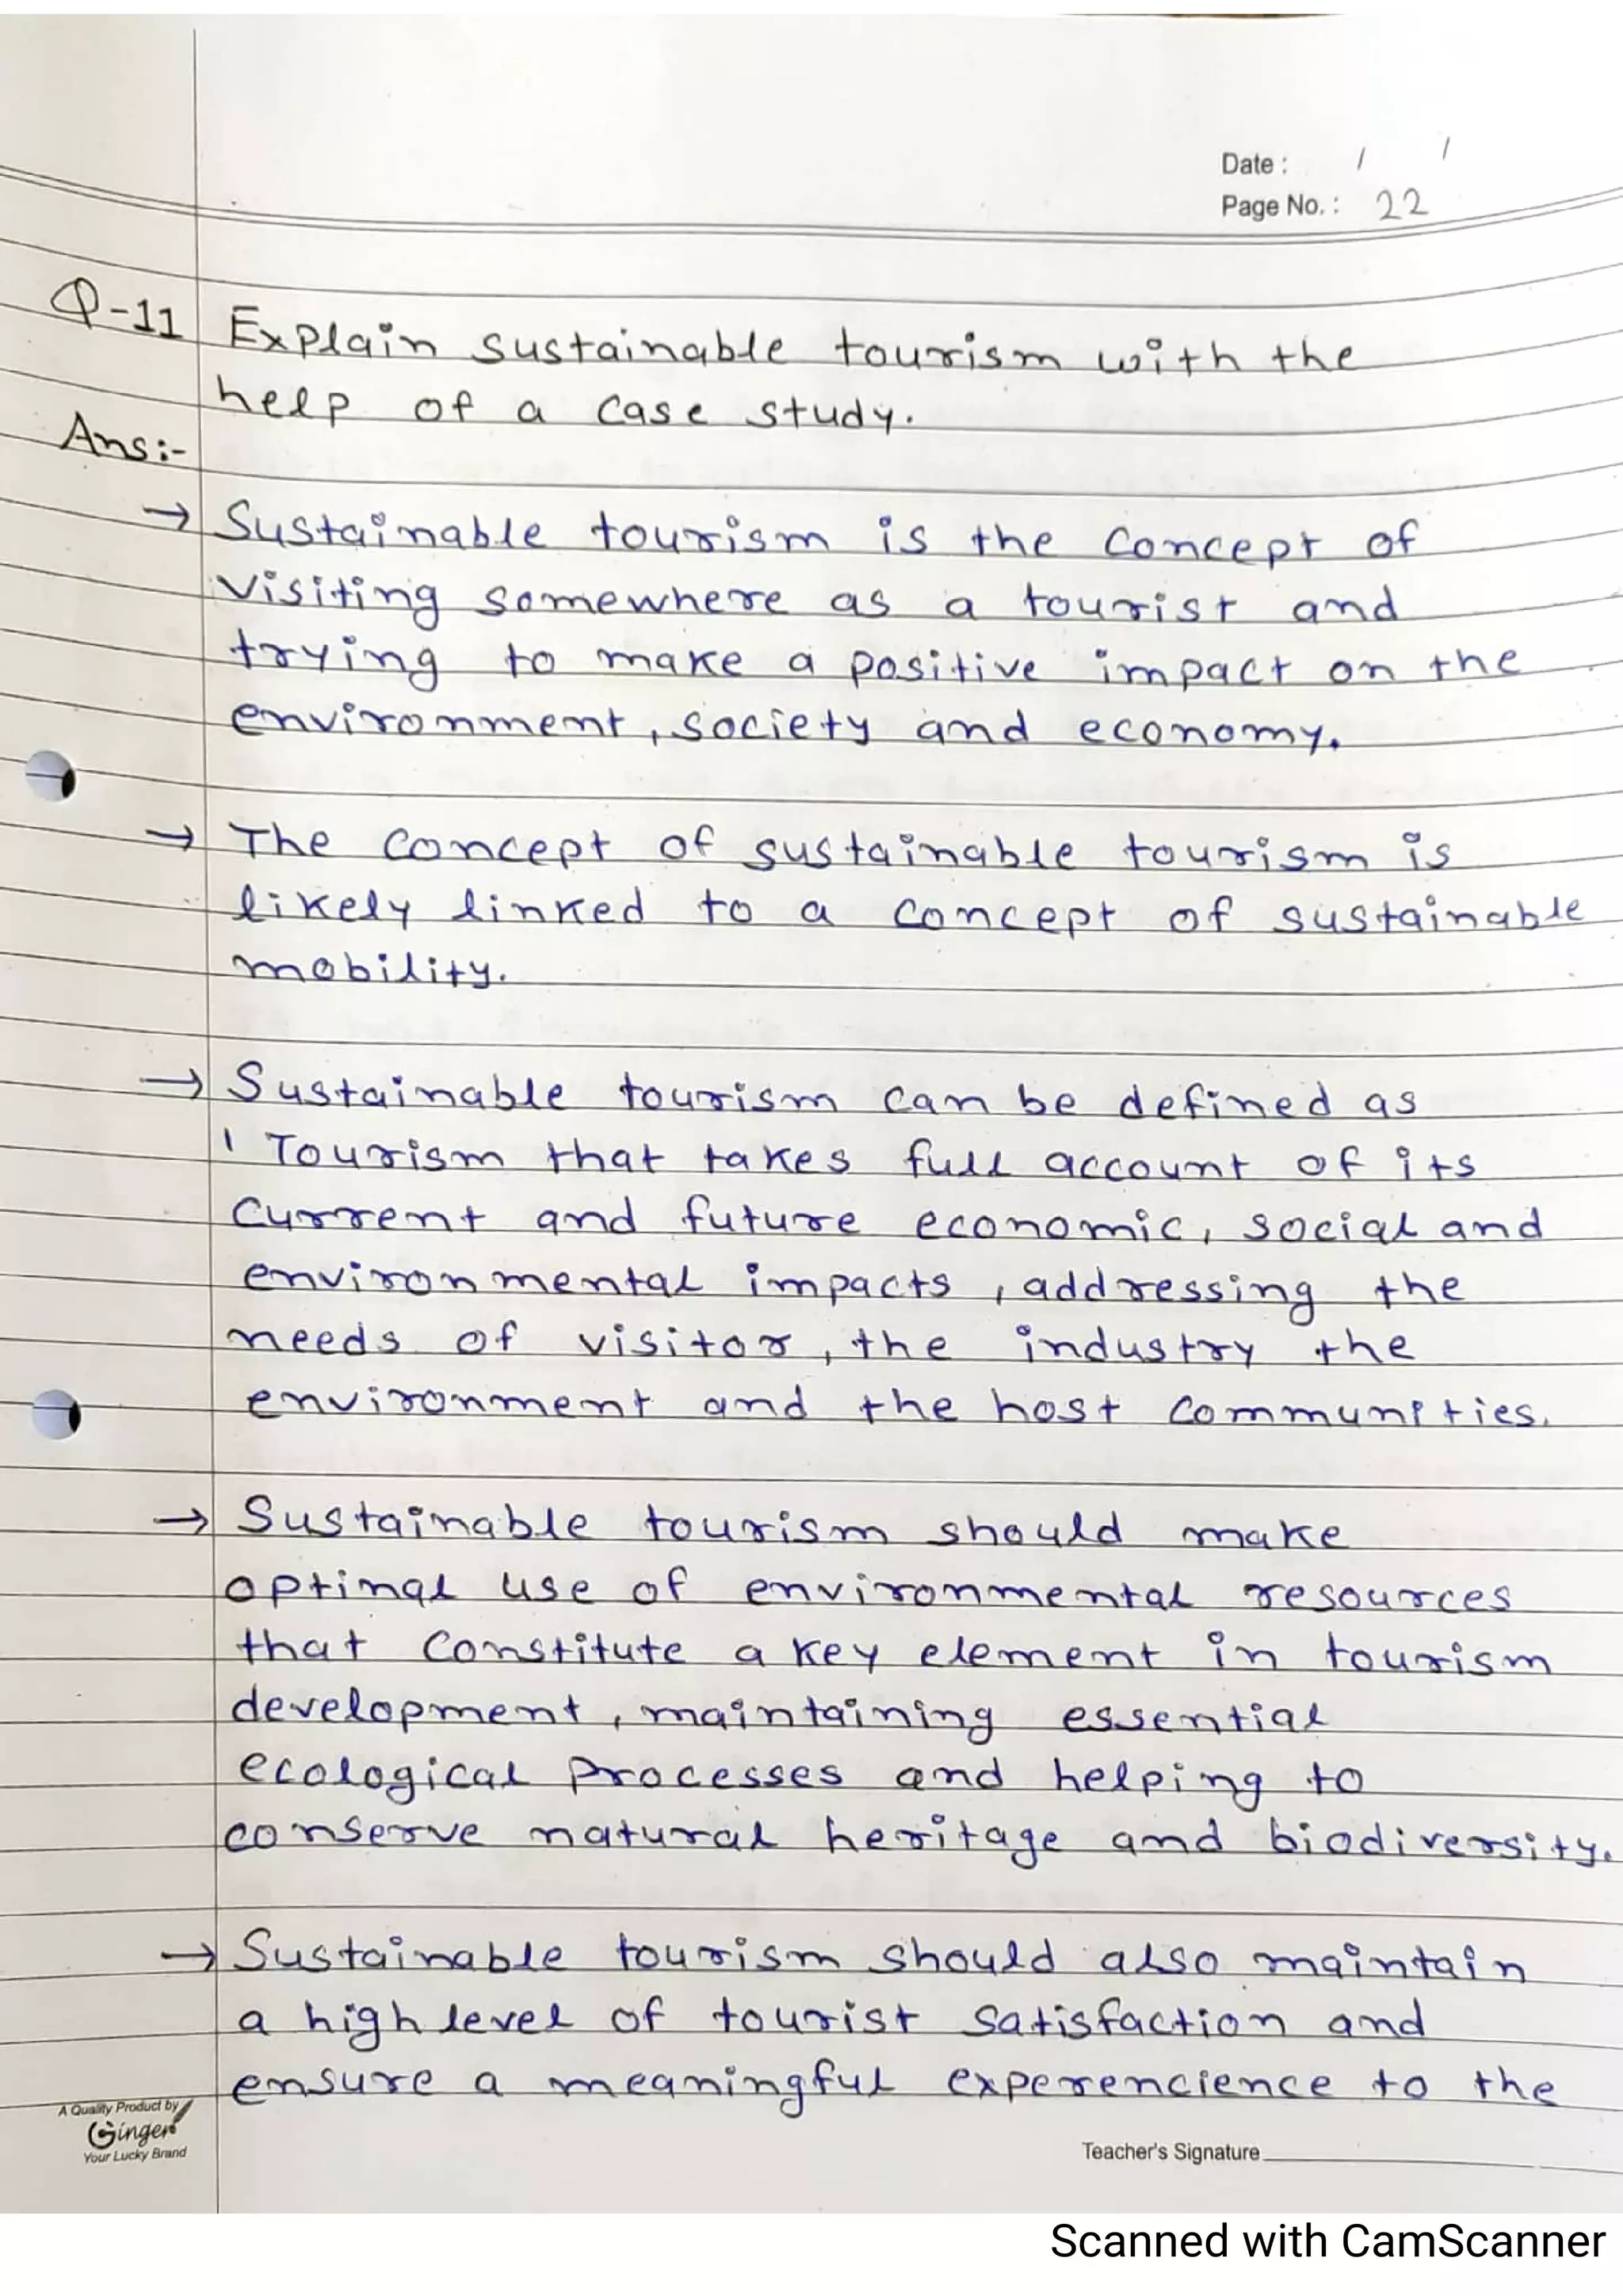 Date : / /
Page No. : 22
Q-11 Explain sustainable tourism with the
help of a case study.
Ans:-
→ Sustainable tourism is the concept of
visiting somewhere as a tourist and
trying to make a positive impact on the
environment, society and economy.
→ The concept of sustainable tourism is
likely linked to a concept of sustainable
mobility.
→ Sustainable tourism can be defined as
' Tourism that takes full account of its
current and future economic, social and
environmental impacts, addressing the
needs of visitor, the industry the
environment and the host communities.
→ Sustainable tourism should make
optimal use of environmental resources
that constitute a key element in tourism
development, maintaining essential
ecological processes and helping to
conserve natural heritage and biodiversity.
→ Sustainable tourism should also maintain
a high level of tourist satisfaction and
ensure a meaningful experencience to the
A Quality Product by
Ginger
Your Lucky Brand
Teacher's Signature
Scanned with CamScanner